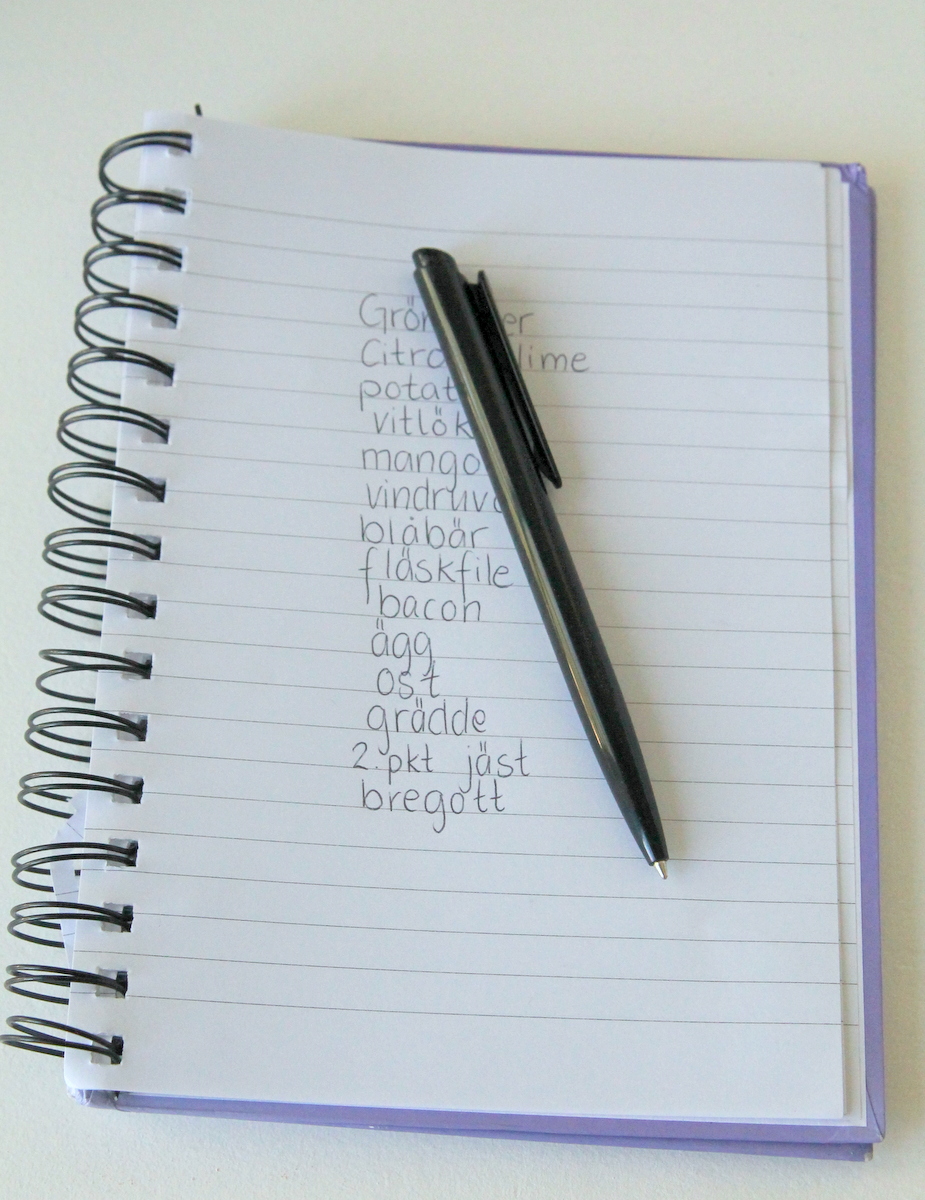 Citro lime
potat
vitlök
mango
vindruv
blåbär
fläskfile
bacon
ägg
ost
grädde
2 pkt jäst
bregott